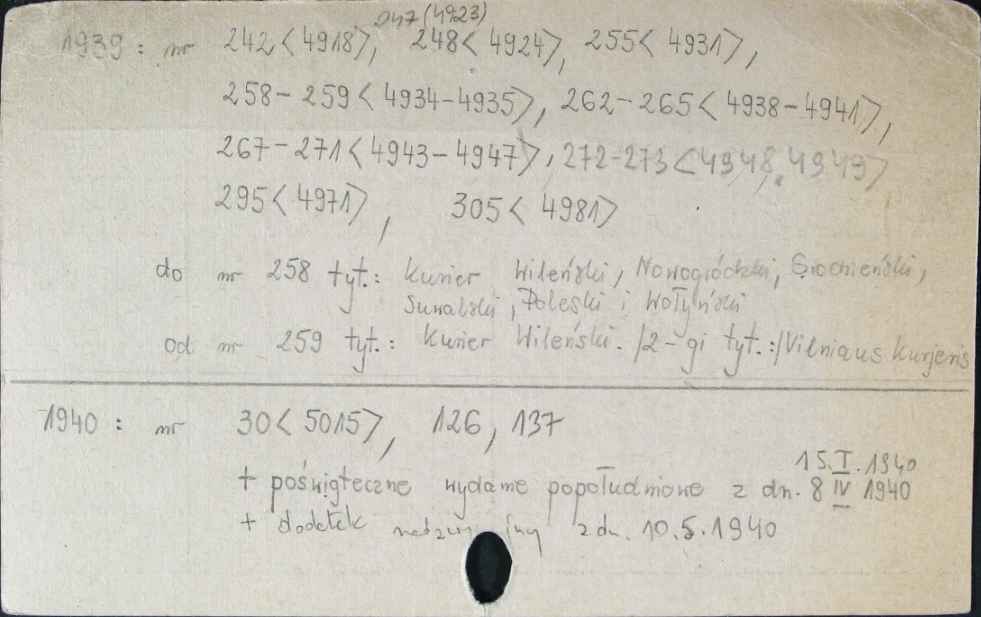 247 (4923)
1939: nr 242<4918>, 248<4924>, 255<4931>,
258-259<4934-4935>, 262-265<4938-4941>,
267-271<4943-4947>, 272-273<4948, 4949>
295<4971>, 305<4981>
do nr 258 tyt.: Kurier Wileński, Nowogródzki, Grodzieński,
Suwalski, Poleski i Wołyński
od nr 259 tyt.: Kurier Wileński. /2-gi tyt.:/ Vilniaus Kurjeris
1940: nr 30<5015>, 126, 137
15.I.1940
+ poświąteczne wydanie popołudniowe z dn. 8 IV 1940
+ dodatek z dn. 10.5.1940